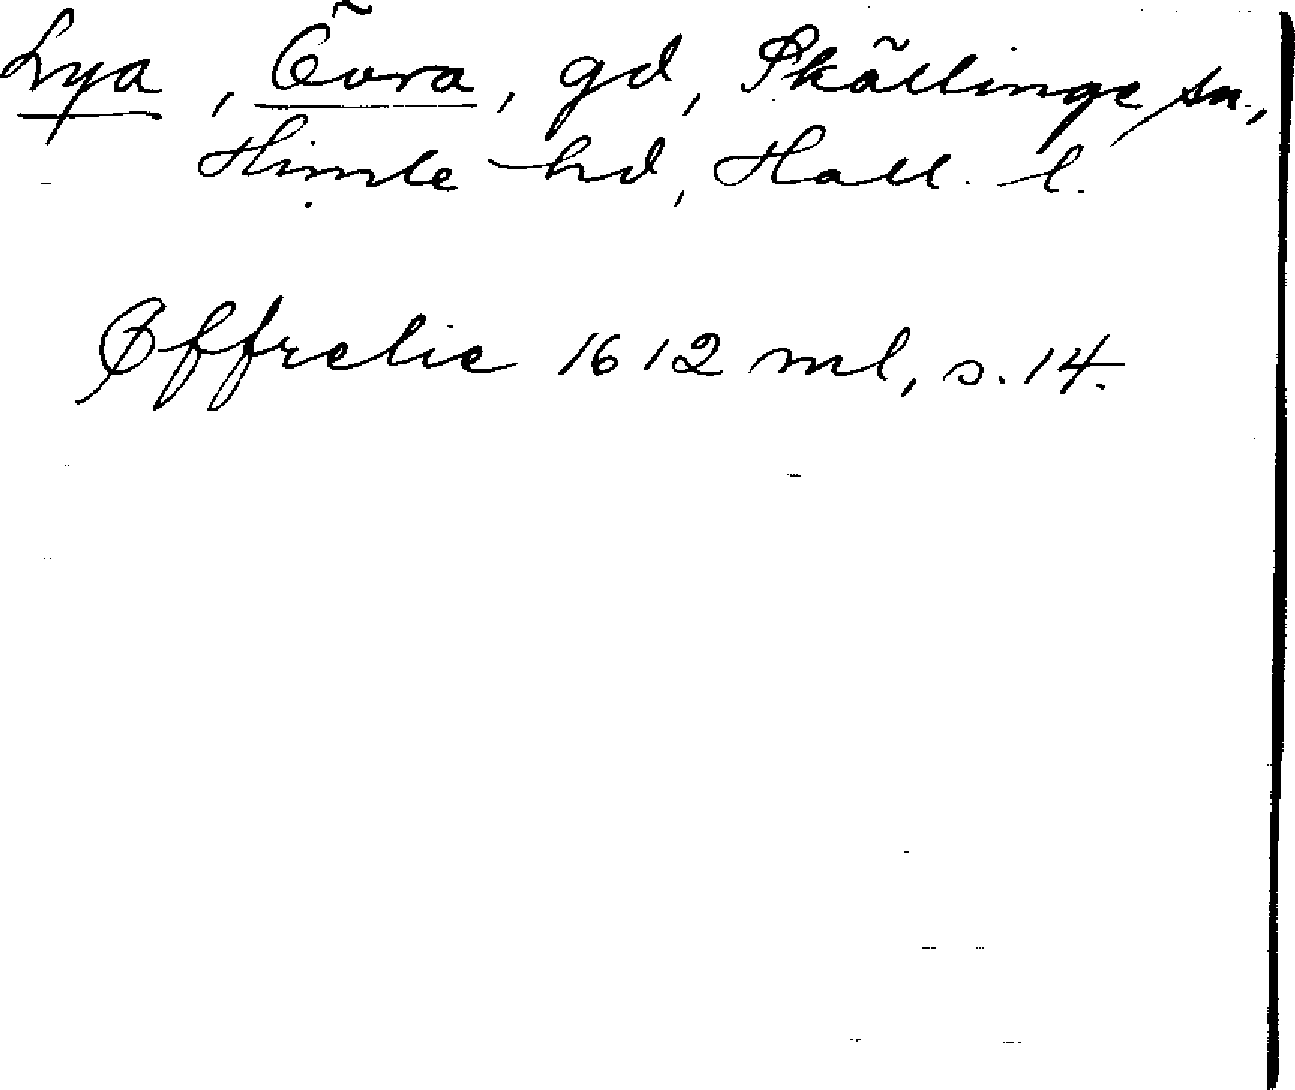 Lya, Övra, gd, Skällinge sn,
Himle hd, Hall. l.
Øffrelie 1612 ml, s. 14.